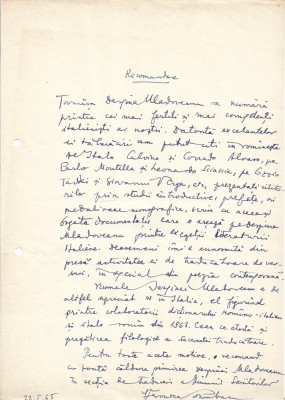 Recomandare
Despina Mladoveanu se numără
printre cei mai fertili și mai competenți
italieniști ai noștri. Datorită excelentelor
ei tălmăciri am putut citi în românește
pe Italo Calvino și Corrado Alvaro, pe
Carlo Montella și Leonardo Sciascia, pe
și Giovanni Verga, etc, prezentați citito-
rilor prin studii introductive, prefețe, ori
medalioane monografice, scrise cu aceeași
bogată documentație care o așează pe Despina
Mladoveanu printre exegeții literaturii
italiene. Deasemeni îmi e cunoscută din
presă activitatea ei de traducătoare de ver-
suri, în special din poezia contemporană.
Numele Despinei Mladoveanu e de
altfel apreciat și în Italia, el figurând
printre colaboratorii dicționarului româno-italian
și italo-român din 1963. Ceea ce atestă și
pregătirea filologică a acestei traducătoare.
Pentru toate aceste motive, o recomand
cu toată căldura primirea Despinei Mladoveanu
în secția de traduceri a Uniunii Scriitorilor
22.5.65